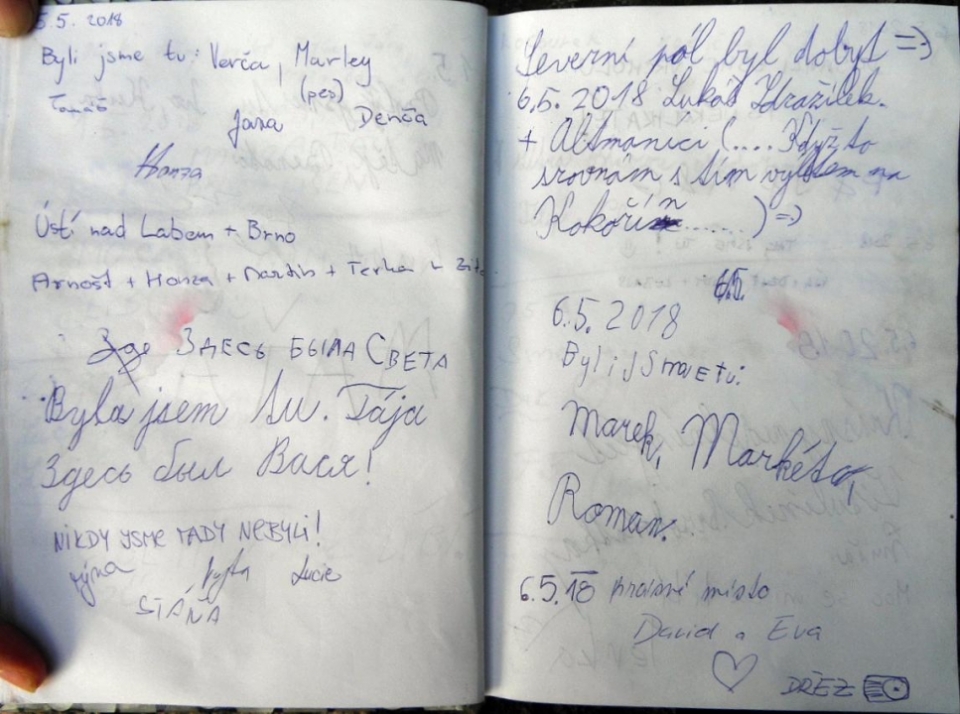 5.5. 2018
Byli jsme tu: Verča, Marley
(pes)
Tomáš
Jana Denča
Honza
Ústí nad Labem + Brno
Arnošt + Honza + Martin + Terka +
Здесь была Света
Byla jsem tu. Tája
Здесь был Вася!
NIKDY JSME TADY NEBYLI!
Týna Vojta Lucie
STÁŇA
Severní pól byl dobyt =>
6.5. 2018 Lukáš Zdražílek.
+ Altmanici (.... Když to
srovnám s tím výletem na
Kokořín ......) =>
6.5.
6.5.2018
Byli jsme tu:
Marek, Markéta,
Roman.
6.5.18 krásné místo
David a Eva
DŘEZ